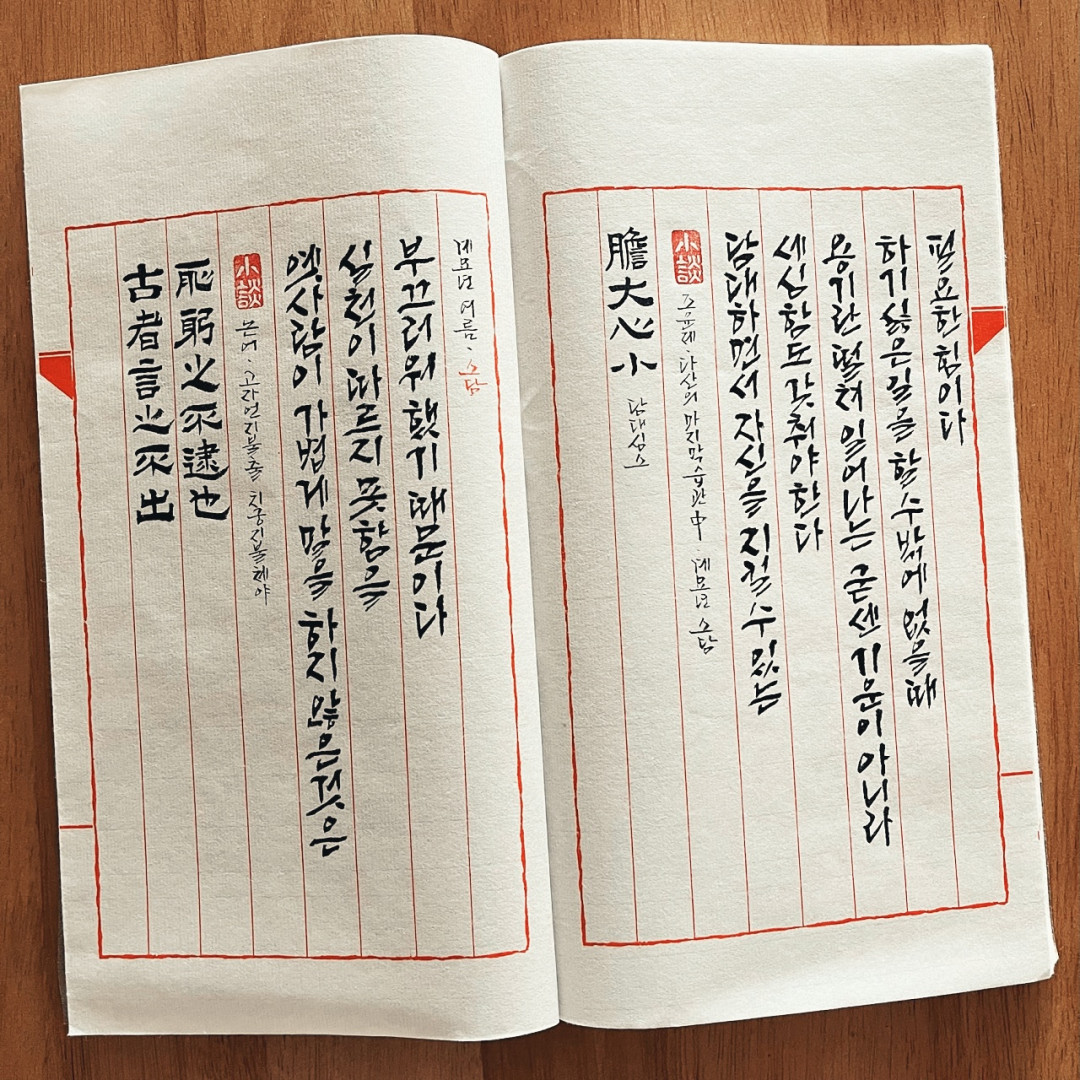 古者言之不出
恥躬之不逮也
小談
논어·고자언지불출 치궁지불체야
옛사람이 가볍게 말을 하지 않은 것은
실천이 따르지 못함을
부끄러워 했기 때문이다
계묘년 여름·소담
膽大心小 담대심소
小談
조윤제·다산의 마지막 습관 中 계묘년 소담
담대하면서 자신을 지킬 수 있는
세심함도 갖춰야 한다
용기란 떨쳐 일어나는 굳센 기운이 아니라
하기 싫은 일을 할 수밖에 없을 때
필요한 힘이다